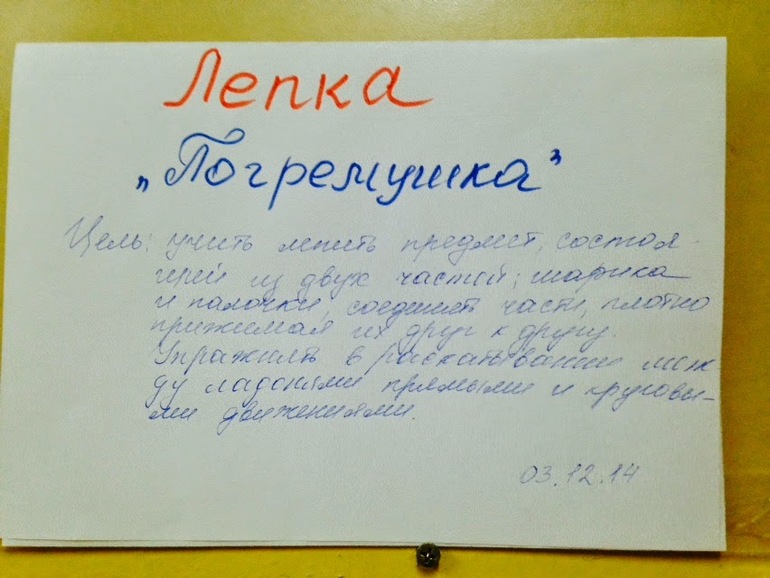 Лепка
„Погремушка"
Цель: учить лепить предмет, состоя-
щий из двух частей; шарика
и палочки, соединять части, плотно
прижимая их друг к другу.
Упражнять в раскатывании меж-
ду ладонями прямыми и круговы-
ми движениями.
03.12.14